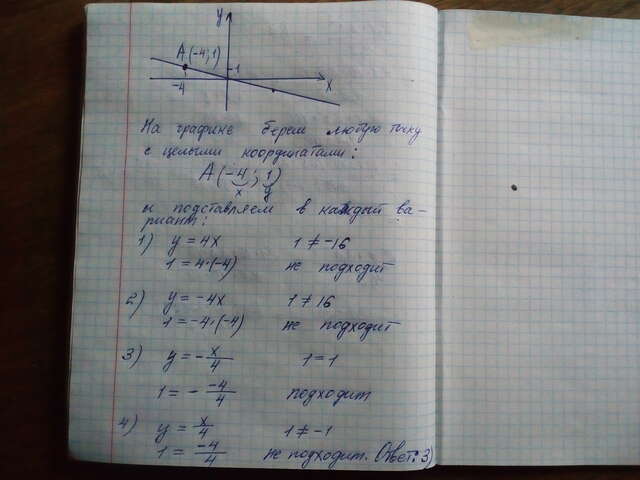 y
A(-4;1)
1
-4
x
На графике берем любую точку
с целыми координатами:
A(-4; 1)
x y
и подставляем в каждый ва-
риант:
1) y = 4x 1 ≠ -16
1 = 4·(-4) не подходит
2) y = -4x 1 ≠ 16
1 = -4·(-4) не подходит
3) y = -x/4 1 = 1
1 = - -4/4 подходит
4) y = x/4 1 ≠ -1
1 = -4/4 не подходит. Ответ: 3)